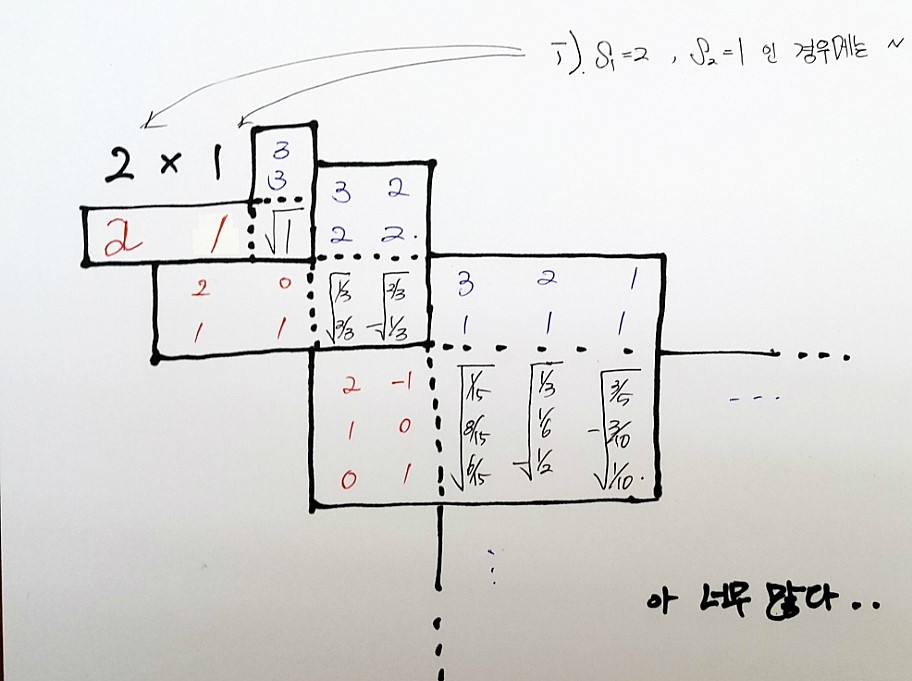 i). S₁=2 , S₂=1 인 경우에는 ~
2 × 1
3
3
2 1 √1
3 2
2 2
2 0 √1/3 √2/3
1 1 √2/3 -√1/3
3 2 1
1 1 1
2 -1 √1/15 √1/3 √3/5
1 0 √8/15 √1/6 -√3/10
0 1 √6/15 -√1/2 √1/10
아 너무 많다..